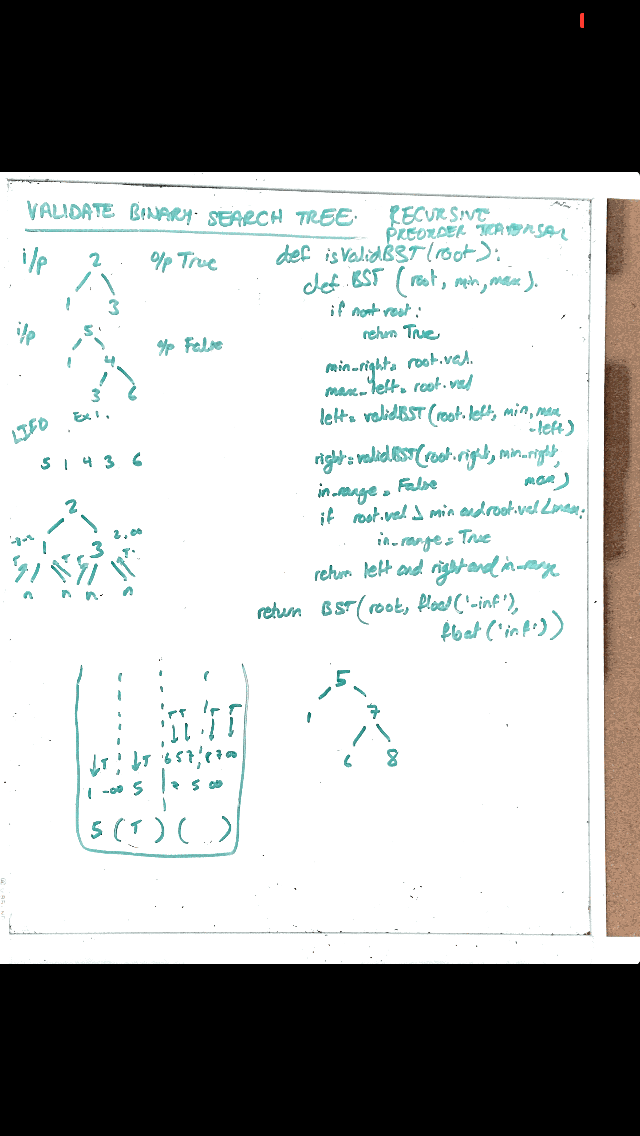 VALIDATE BINARY SEARCH TREE.
RECURSIVE
PREORDER TRAVERSAL
i/p 2 o/p True
1 3
i/p 5 o/p False
1 4
3 6
LIFO Ex 1.
5 1 4 3 6
2
1 3 2, ∞
T T T T
n n n n
def isValidBST(root):
def BST (root, min, max).
if not root:
return True
min_right = root.val.
max_left = root.val
left = validBST(root.left, min, max
-left)
right = validBST(root.right, min_right,
max)
in_range = False
if root.val > min and root.val < max:
in_range = True
return left and right and in_range
return BST(root, float('-inf'),
float('inf'))
T T T T
↓T ↓T 6 5 7 8 7 ∞
1 -∞ 5 7 5 ∞
5 (T) ( )
5
1 7
6 8